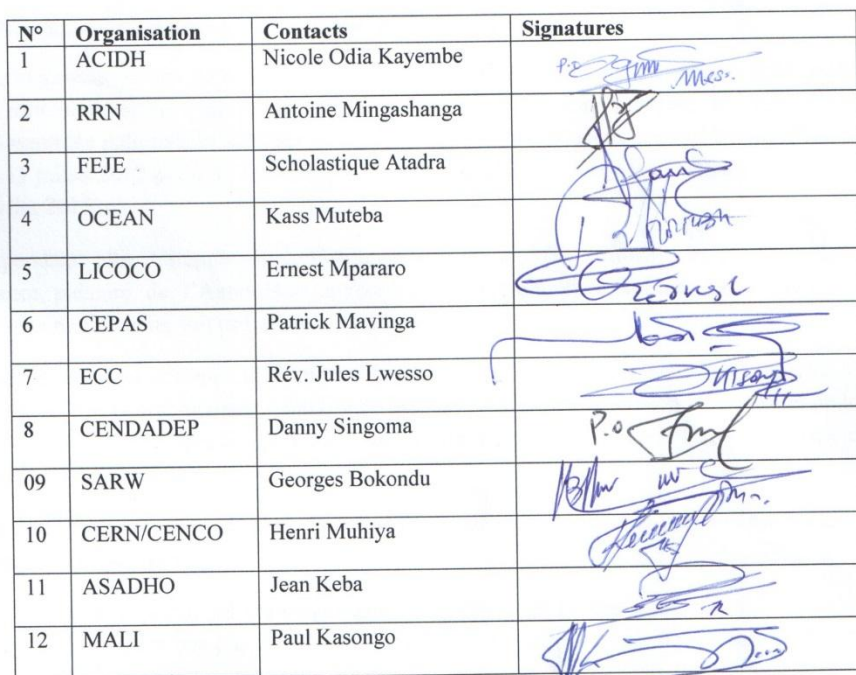 N° Organisation Contacts Signatures
1 ACIDH Nicole Odia Kayembe P.O
2 RRN Antoine Mingashanga
3 FEJE Scholastique Atadra
4 OCEAN Kass Muteba
5 LICOCO Ernest Mpararo
6 CEPAS Patrick Mavinga
7 ECC Rév. Jules Lwesso
8 CENDADEP Danny Singoma P.O
09 SARW Georges Bokondu
10 CERN/CENCO Henri Muhiya
11 ASADHO Jean Keba
12 MALI Paul Kasongo